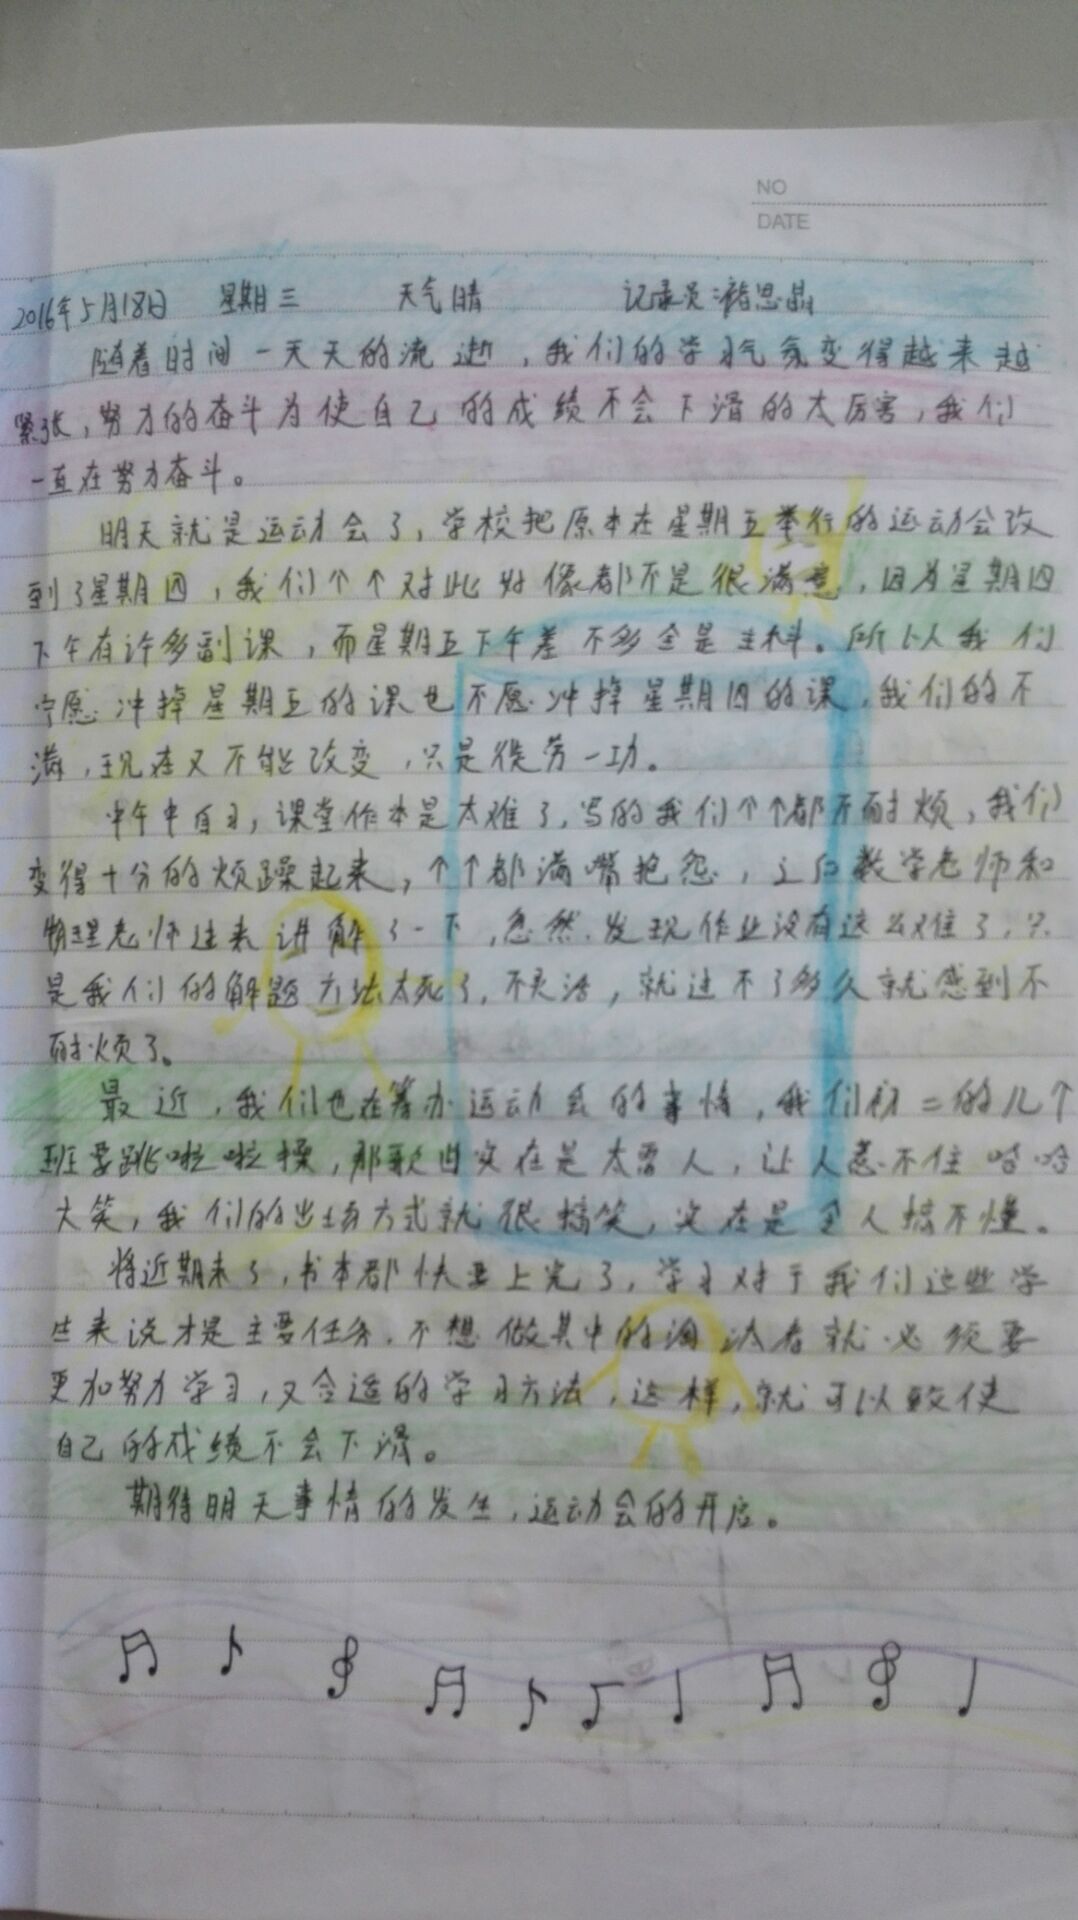 NO
DATE
2016年5月18日 星期三 天气晴 记录员:褚思晶
随着时间一天天的流逝,我们的学习气氛变得越来越
紧张,努力的奋斗为使自己的成绩不会下滑的太厉害,我们
一直在努力奋斗。
明天就是运动会了,学校把原本在星期五举行的运动会改
到了星期四,我们个个对此好像都不是很满意,因为星期四
下午有许多副课,而星期五下午差不多全是主科。所以我们
宁愿冲掉星期五的课也不愿冲掉星期四的课,我们的不
满,现在又不能改变,只是徒劳一功。
中午中自习,课堂作本是太难了,写的我们个个都不耐烦,我们
变得十分的烦躁起来,个个都满嘴抱怨,之后数学老师和
物理老师过来讲解了一下,忽然发现作业没有这么难了,只
是我们的解题方法太死了,不灵活,就过不了多久就感到不
耐烦了。
最近,我们也在筹办运动会的事情,我们初二的几个
班要跳啦啦操,那歌曲实在是太雷人,让人忍不住哈哈
大笑,我们的出场方式就很搞笑,实在是令人搞不懂。
将近期末了,书本都快要上完了,学习对于我们这些学
生来说才是主要任务,不想做其中的淘汰者就必须要
更加努力学习,又合适的学习方法,这样,就可以致使
自己的成绩不会下滑。
期待明天事情的发生,运动会的开启。